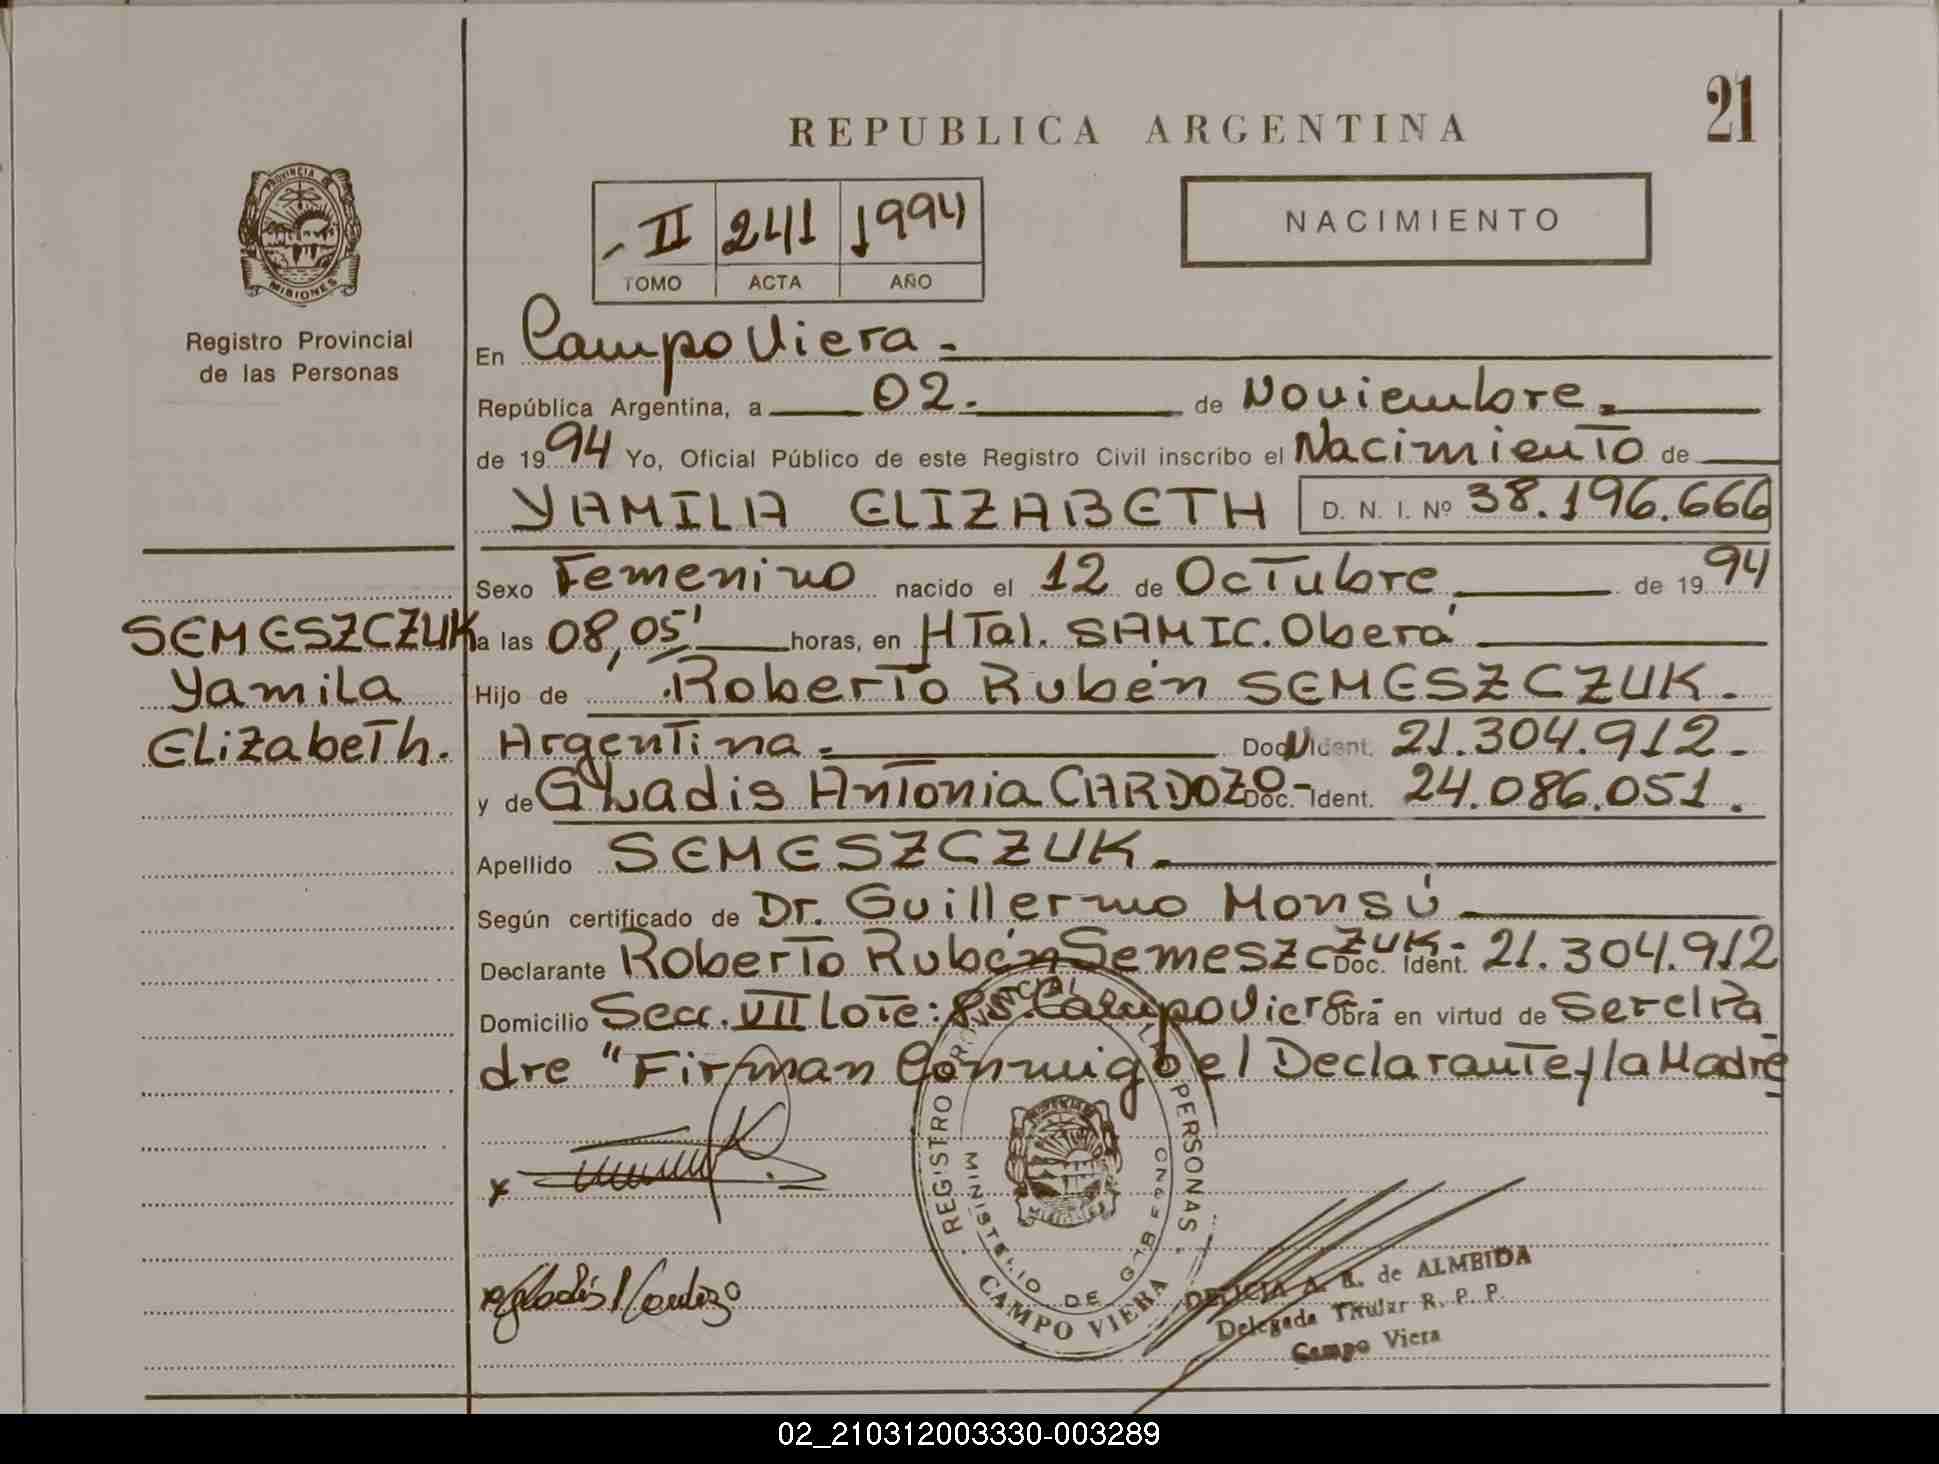 21
REPUBLICA ARGENTINA
NACIMIENTO
II 241 1994
TOMO ACTA AÑO
PROVINCIA
MISIONES
Registro Provincial
de las Personas
En Campo Viera.
República Argentina, a 02. de Noviembre.
de 1994 Yo, Oficial Público de este Registro Civil inscribo el Nacimiento de
YAMILA ELIZABETH D. N. I. Nº 38.196.666
Sexo Femenino nacido el 12 de Octubre de 1994
SEMESZCZUK
Yamila
Elizabeth.
a las 08,05' horas, en HTal. SAMIC. Oberá
Hijo de Roberto Rubén SEMESZCZUK.
Argentina. Doc. Ident. 21.304.912.
y de Gladis Antonia CARDOZO- Doc. Ident. 24.086.051.
Apellido SEMESZCZUK.
Según certificado de Dr. Guillermo Monsú
Declarante Roberto Rubén Semeszczuk- Doc. Ident. 21.304.912
Domicilio Secc. VII Lote: Campo Viera- Obra en virtud de Ser el Pa
dre "Firman Conmigo el Declarante y la Madre
x
Gladis Cardozo
REGISTRO PROVINCIAL DE LAS PERSONAS
MINISTERIO DE GOBIERNO
CAMPO VIERA
DELICIA A. R. de ALMEIDA
Delegada Titular R. P. P.
Campo Viera
02_210312003330-003289